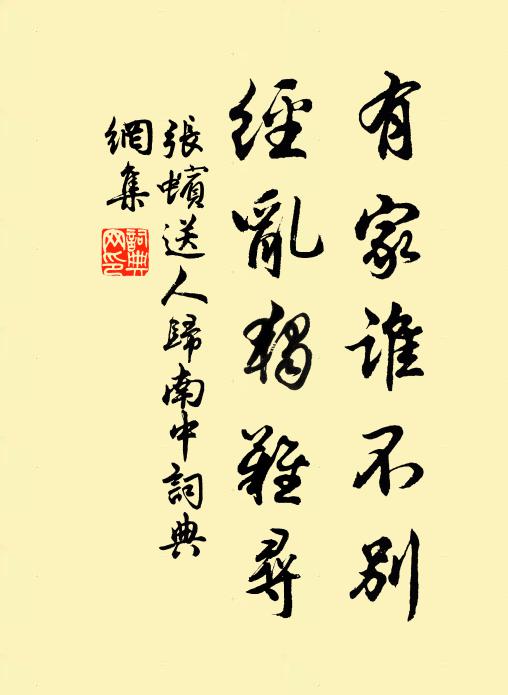 有家誰不別
經亂獨難尋
張蠙送人歸南中詞典
網集
詞典
网印